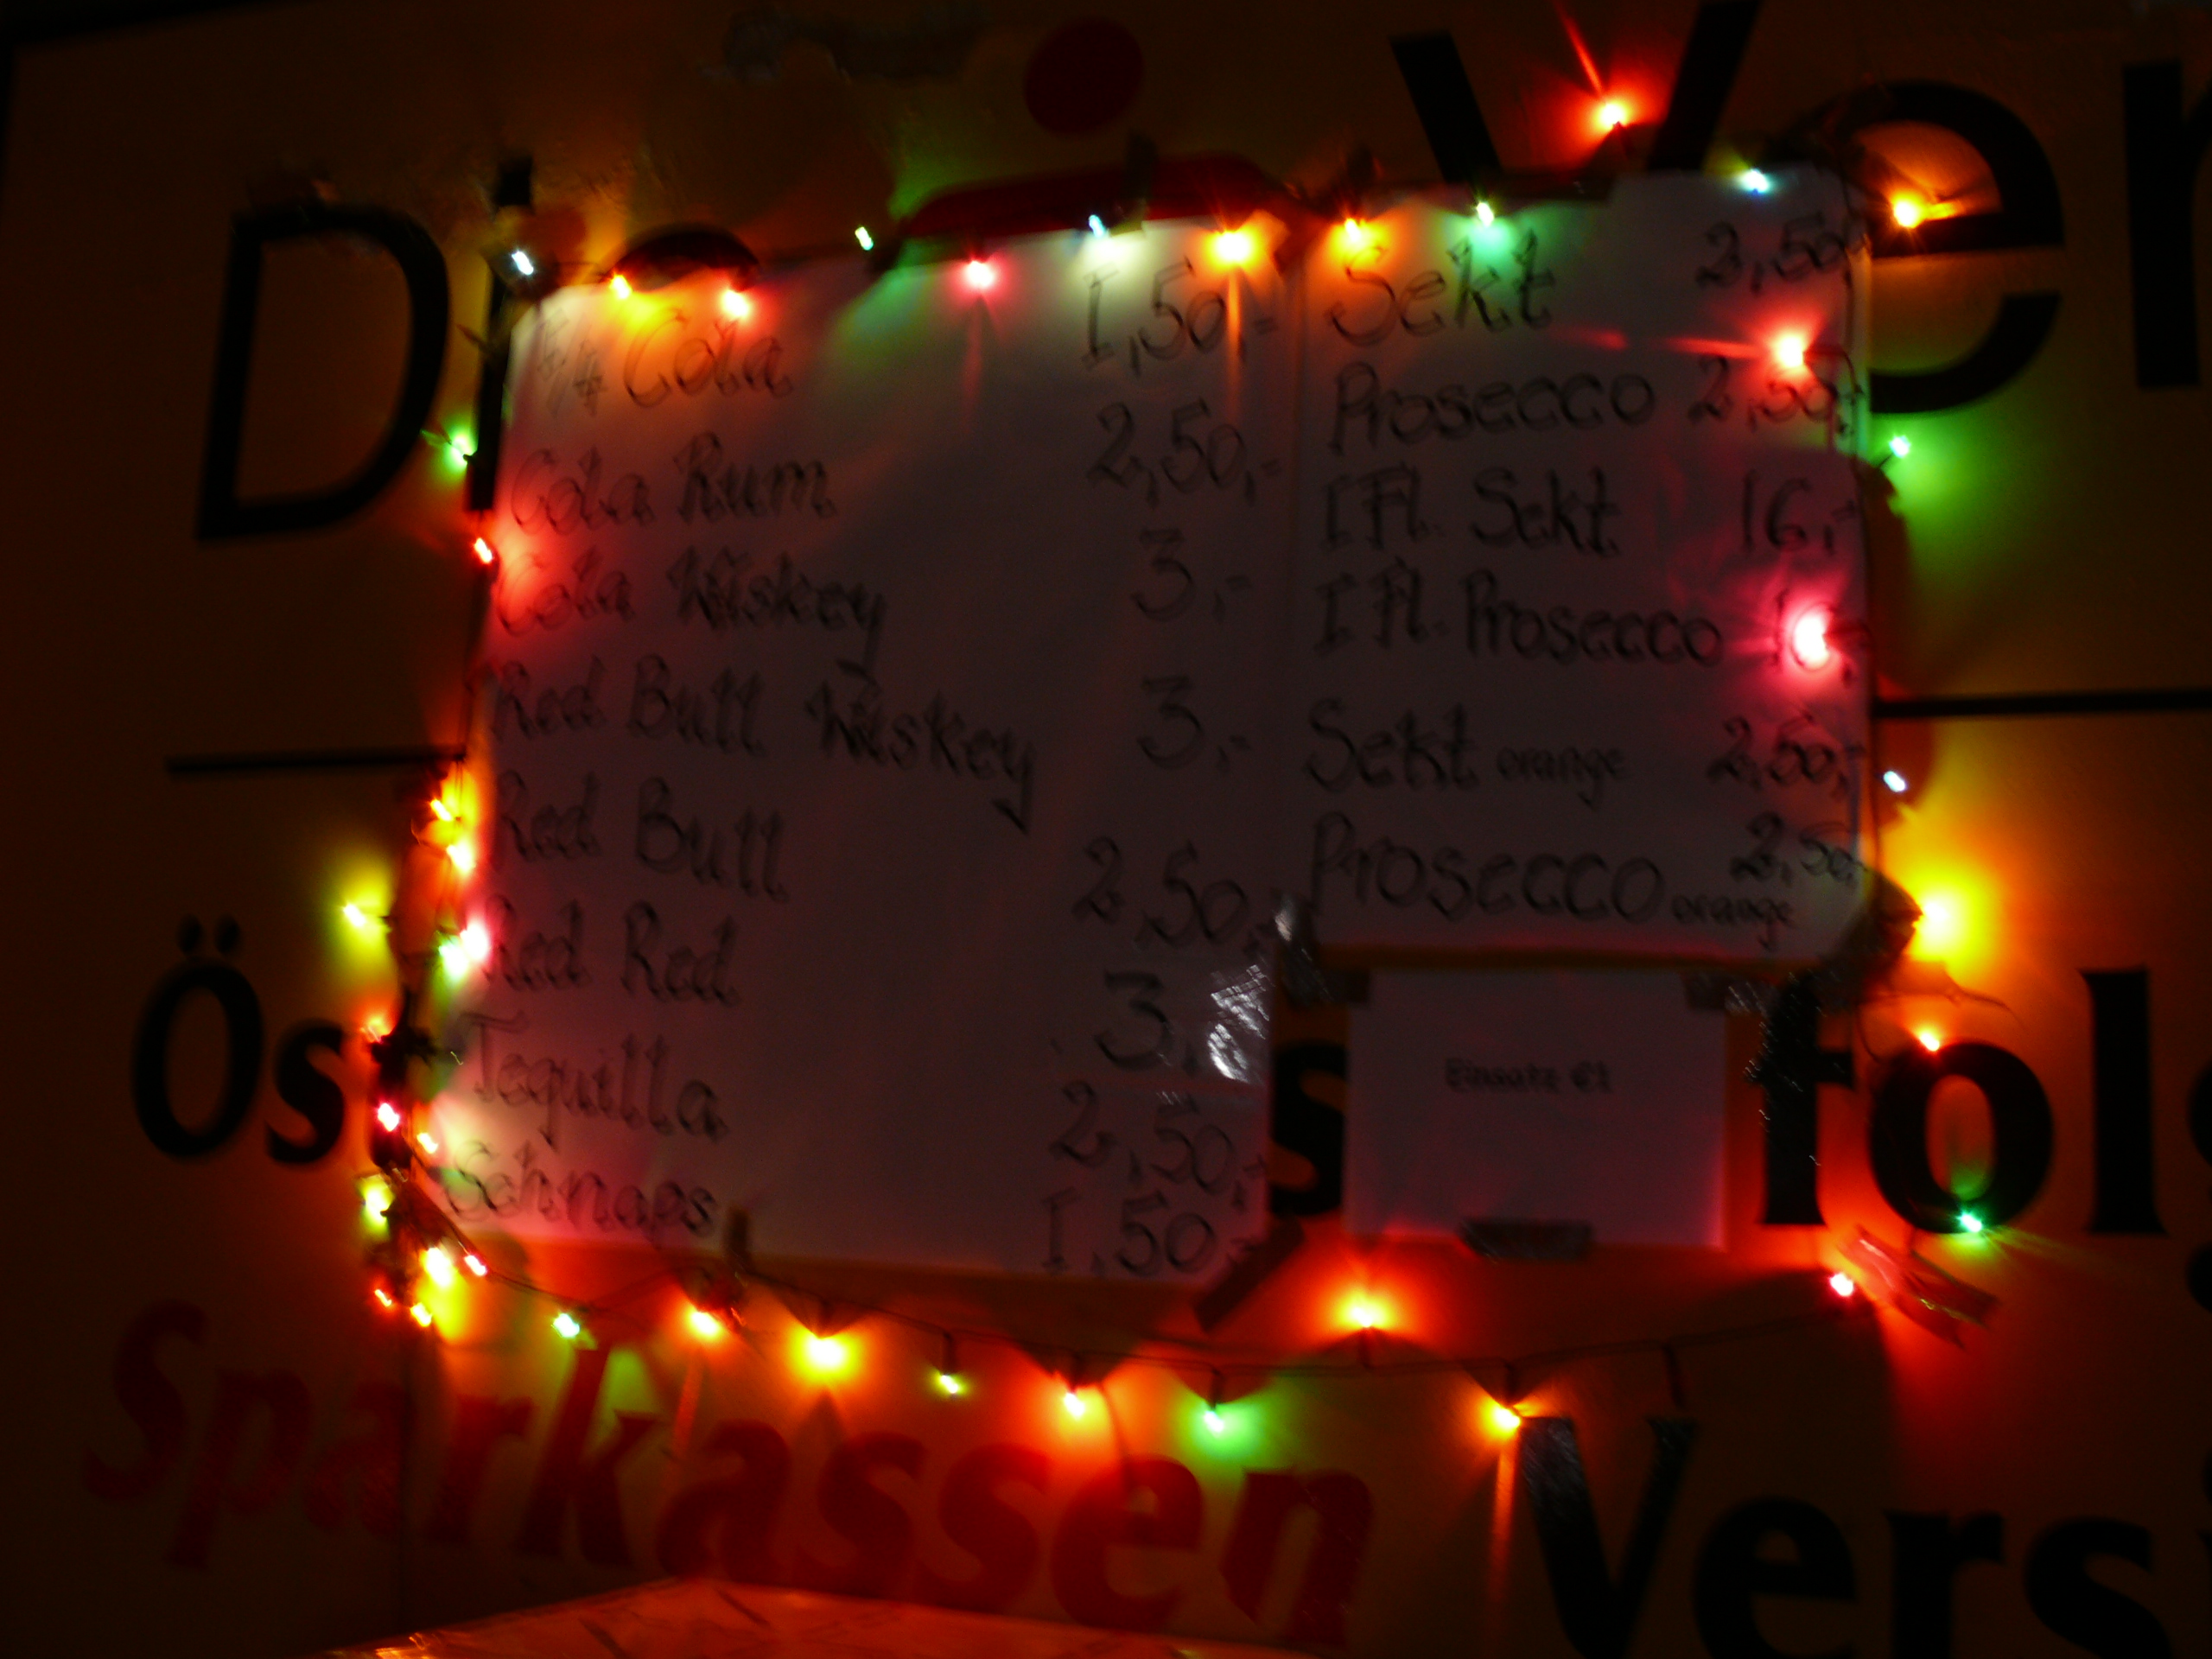 Die Ver
1/4 Cola 1,50,-
Cola Rum 2,50,-
Cola Wiskey 3,-
Red Bull Wiskey 3,-
Red Bull 2,50,-
Red Red 3,-
Tequilla 2,50,-
Schnaps 1,50,-
Sekt 2,50,-
Prosecco 2,50,-
1 Fl. Sekt 16,-
1 Fl. Prosecco
Sekt orange 2,50,-
Prosecco orange 2,50,-
Einsatz €1
Ös s folg
Sparkassen Vers